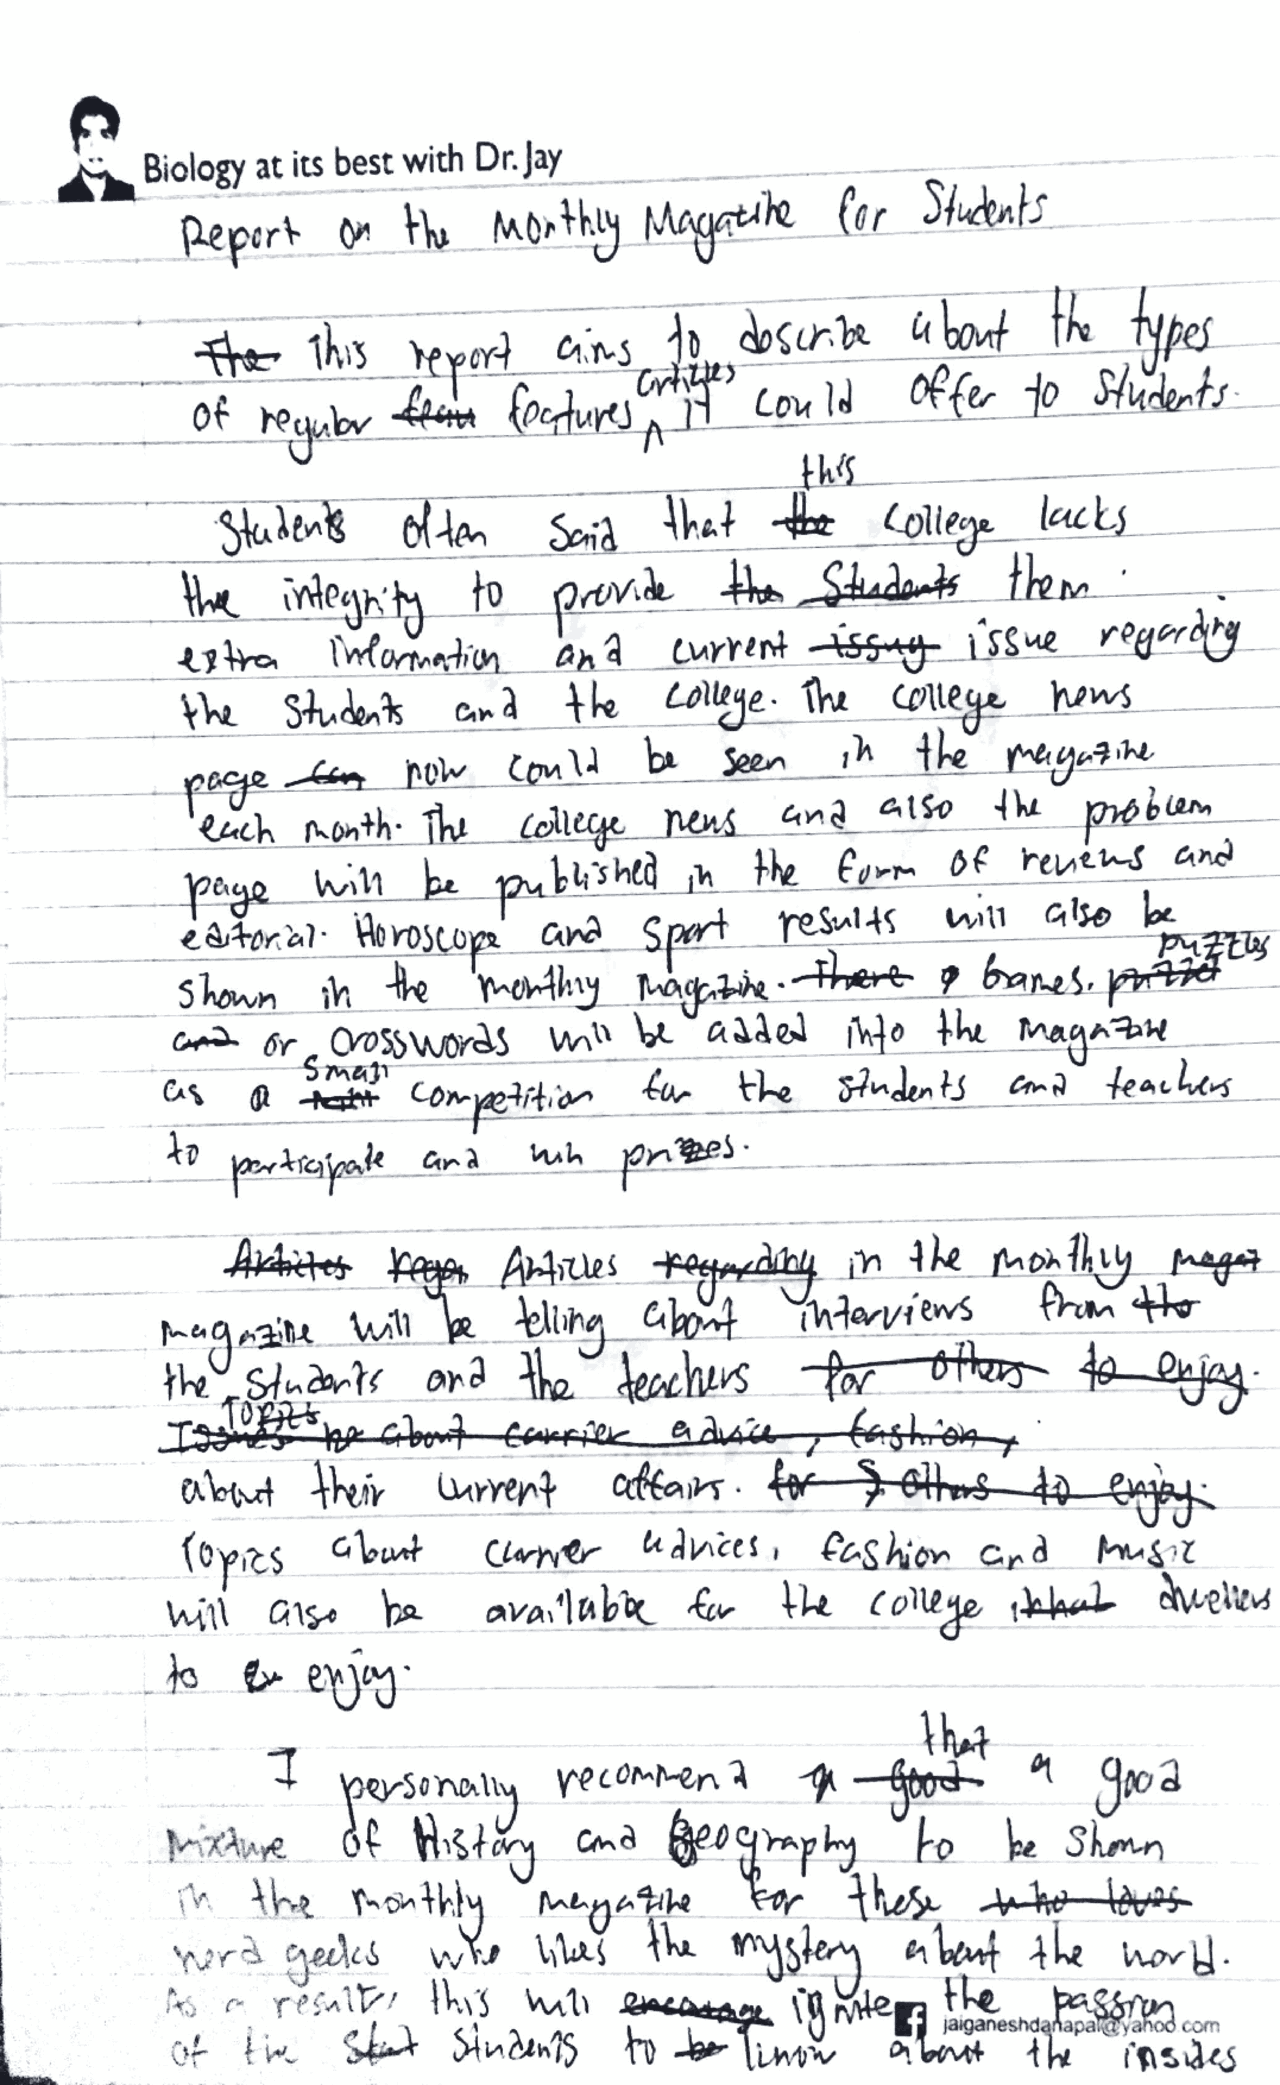 Biology at its best with Dr. Jay
Report on the Monthly Magazine for Students
The This report aims to describe about the types
articles
of regular features it could offer to Students.
this
Students often said that the College lacks
the integrity to provide the Students them
extra information and current issuy issue regarding
the students and the college. The college news
page can now could be seen in the magazine
each month. The college news and also the problem
page will be published in the form of reviews and
editorial. Horoscope and sport results will also be
puzzles
shown in the monthly magazine. There Games, puzzel
and or crosswords will be added into the magazine
small
as a competition for the students and teachers
to participate and win prizes.
Articles Articles regarding in the monthly magaz
magazine will be telling about interviews from the
the students and the teachers for others to enjoy.
Topics
Issues about carrier advice, fashion,
about their current affairs. for others to enjoy.
Topics about carrier advices, fashion and music
will also be available for the college inhat dwellers
to enjoy.
that
I personally recommend a good a good
mixture of History and Geography to be shown
in the monthly magazine for these who loves
nerd geeks who likes the mystery about the world.
As a result, this will encourage ignite the passion
jaiganeshdanapal@yahoo.com
of the stut students to be know about the insides